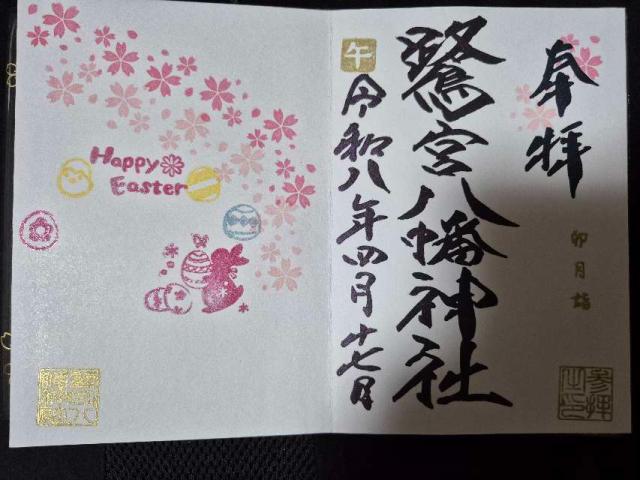 奉拝
卯月詣
参拝之印
鷺宮八幡神社
午
令和八年四月十七日
Happy
Easter